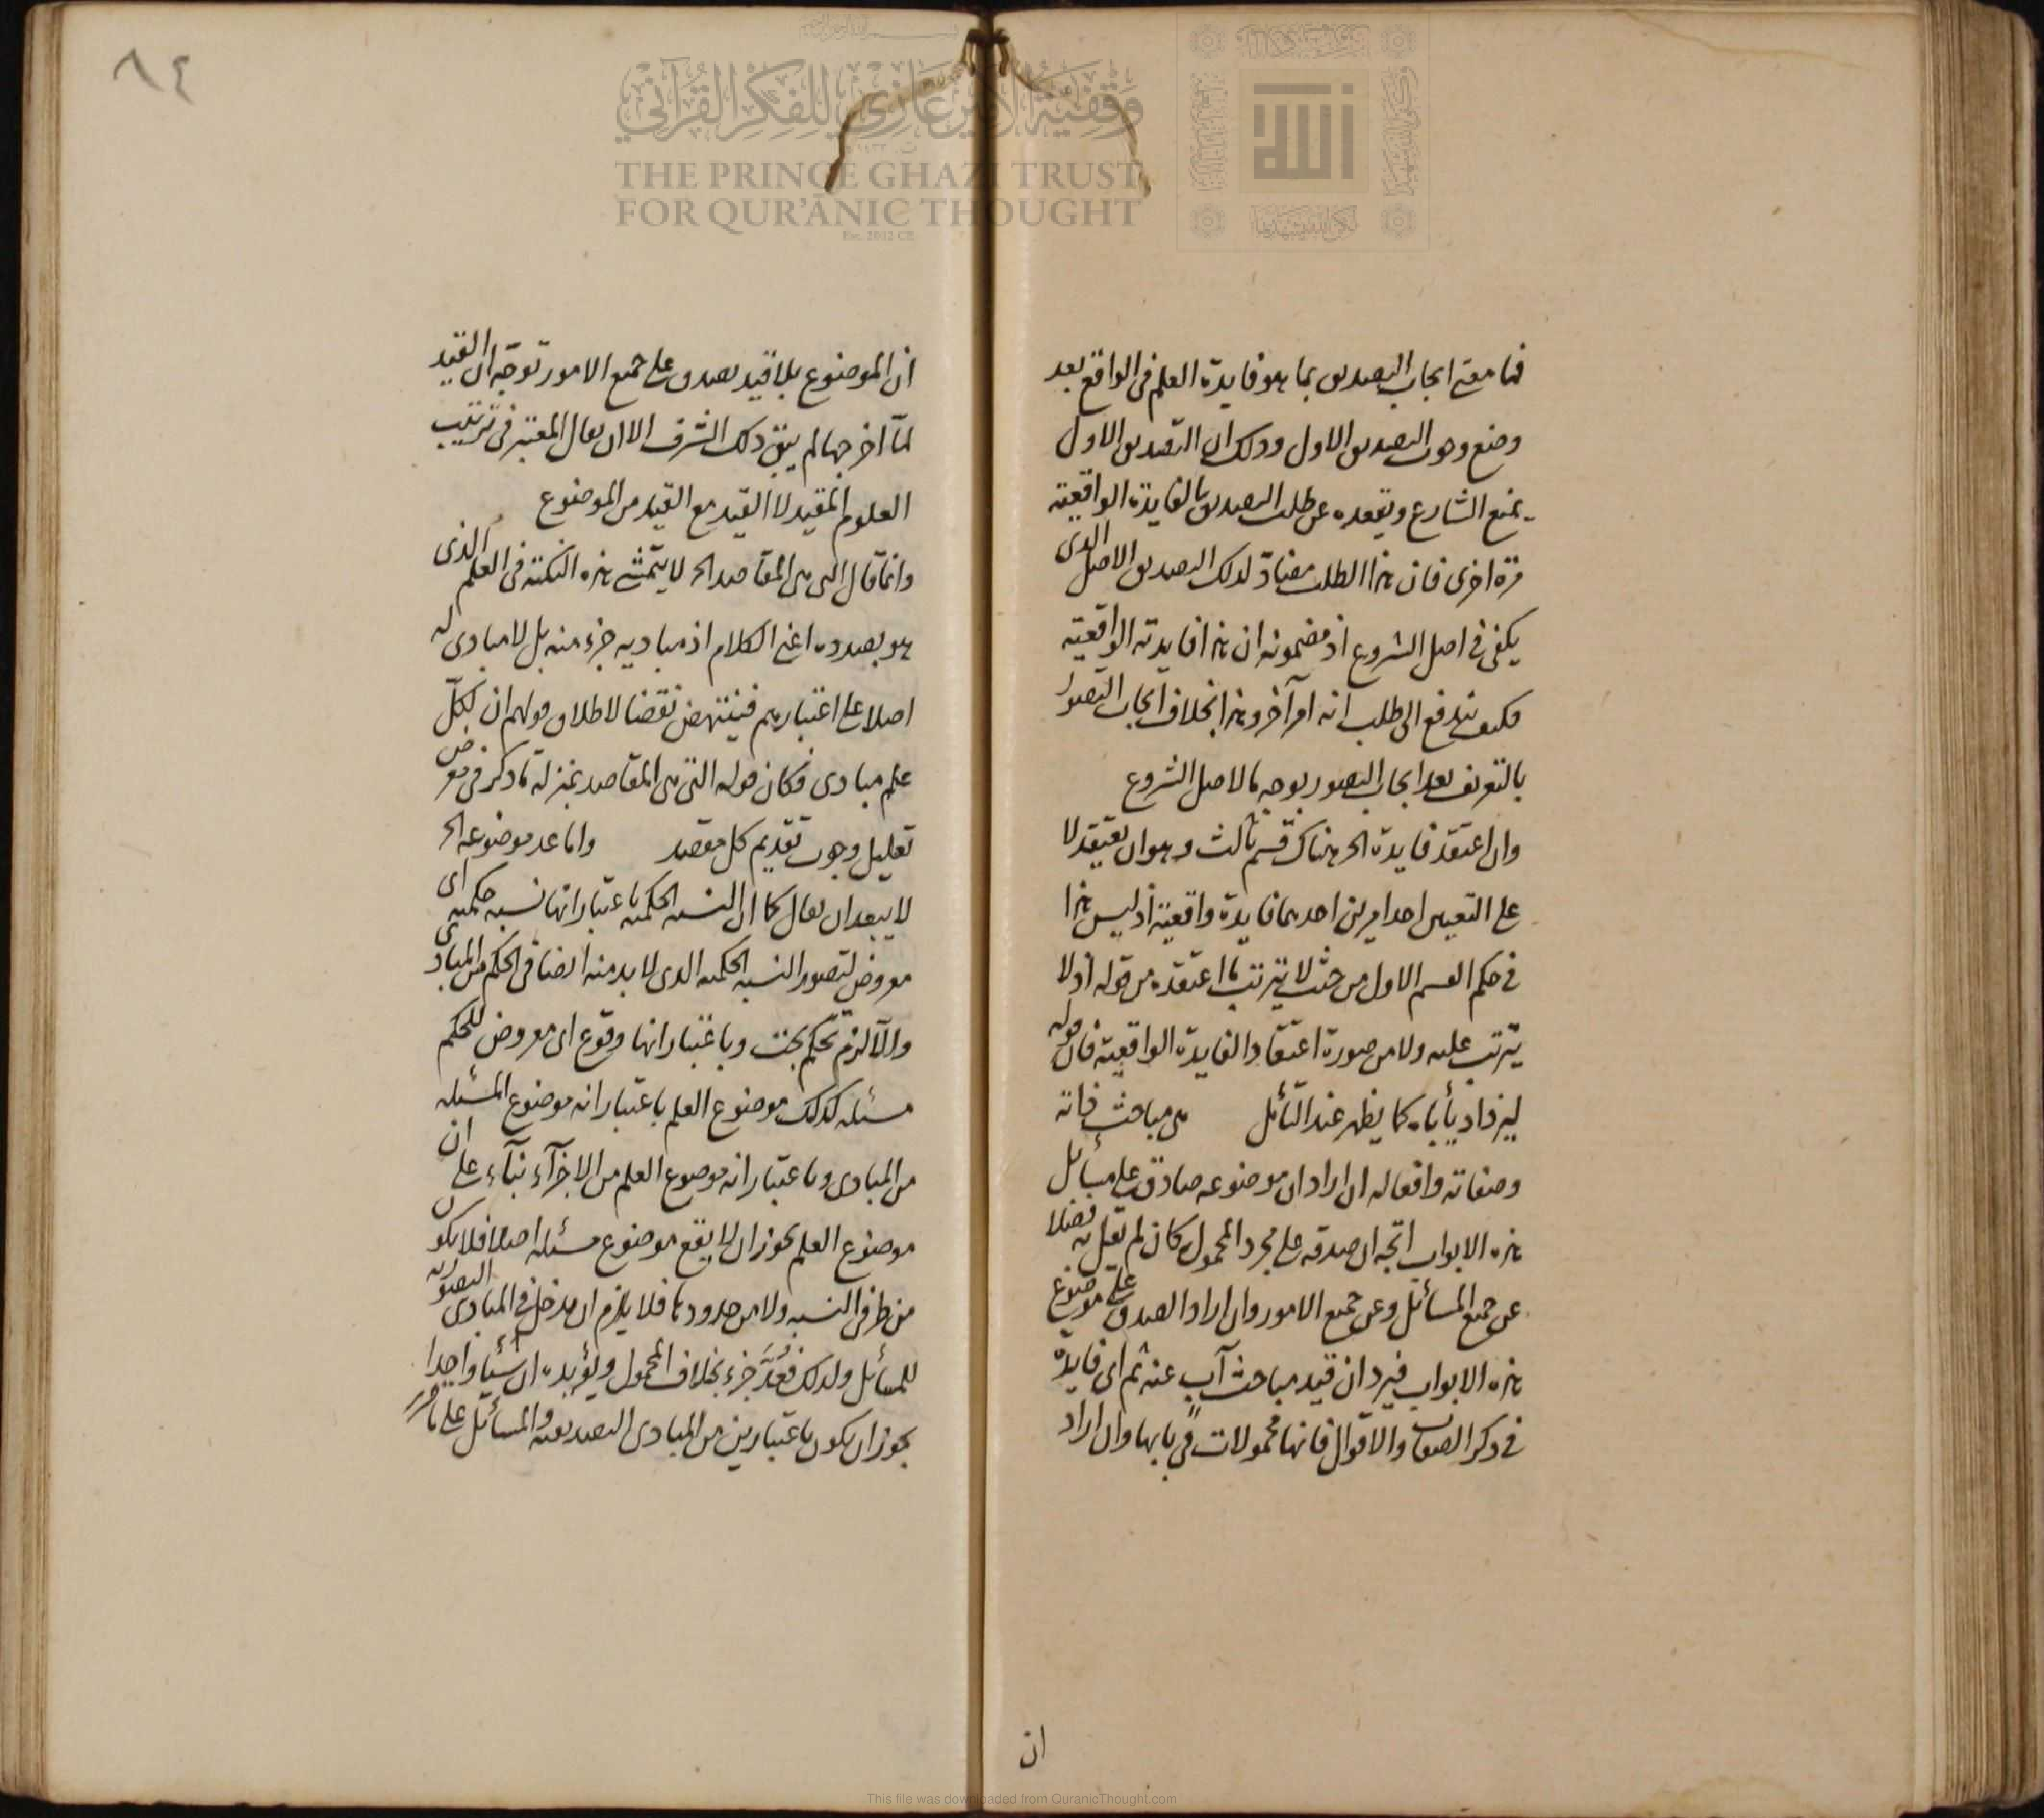 فما معنى ايجاب التصديق بما هو فايدة العلم في الواقع بعد
وضع وجوب التصديق الاول وذلك ان التصديق الاول
يمنع الشارع ويقعده عن طلب التصديق بالفايدة الواقعية
مرة اخرى فان هذا الطلب مضاد لذلك التصديق الاصل الذى
يكفى في اصل الشروع اذ مضمونه ان هذا فايدته الواقعية
فكيف يندفع الى طلب انه امر آخر وهذا بخلاف ايجاب التصور
بالتعريف بعد ايجاب التصور بوجه ما لاصل الشروع
وان اعتقد فايدة الخ هناك قسم ثالث وهو ان يعتقد لا
على التعيين احد امرين احدهما فايدة واقعية اذ ليس هذا
في حكم القسم الاول من حيث لا يترتب ما اعتقده من قوله اذ لا
يترتب عليه ولا من صورة اعتقاد الفايدة الواقعية فان قوله
ليزداد يأباه كما يظهر عند التأمل من مباحث ذاته
وصفاته وافعاله ان اراد ان موضوعه صادق على مسائل
هذه الابواب اتجه ان صدقه على مجرد المحمول كان لم يقل به فضلا
عن جميع المسائل وعن جميع الامور وان اراد الصدق على موضوع
هذه الابواب فيرد ان قيد مباحث آب عنه ثم اى فايدة
في ذكر الصفات والاقوال فانها محمولات في بابها وان اراد
ان
٨٤
ان الموضوع بلا قيد يصدق على جميع الامور توجه ان القيد
لما اخرجها لم يبق ذلك الشرف الا ان يقال المعتبر في ترتيب
العلوم المقيد لا القيد مع القيد من الموضوع
وانما قال التى هى المقاصد الخ لا يتمشى هذه النكتة في العلم الذى
هو بصدده اعنى الكلام اذ مباديه جزء منه بل لا مبادى له
اصلا على اعتبارهم فينتهض نقضا لاطلاق قولهم ان لكل
علم مبادى فكان قوله التى هى المقاصد بمنزلة ما ذكر في معرض
تعليل وجوب تقديم كل مقصد وانما عد موضوعه الخ
لا يبعد ان يقال كما ان النسبة الحكمية باعتبار انها نسبة حكمية اى
معروض لتصور النسبة الحكمية الذى لا بد منه ايضا في الحكم من المبادى
والا لزم تحكم بحت وباعتبار انها وقوع اى معروض للحكم
مسئلة كذلك موضوع العلم باعتبار انه موضوع المسئلة
من المبادى وباعتبار انه موضوع العلم من الاجزآء بنآء على ان
موضوع العلم يجوز ان لا يقع موضوع مسئلة اصلا فلا يكون
من طرفى النسبة ولا من حدودها فلا يلزم ان يدخل في المبادى التصورية
للمسائل ولذلك فعد جزء بخلاف المحمول ويؤيده ان شيئا واحدا
يجوز ان يكون باعتبارين من المبادى التصديقية والمسائل على ما
THE PRINCE GHAZI TRUST
FOR QUR'ĀNIC THOUGHT
Est. 2012 CE
وقفية الأمير غازي للفكر القرآني
This file was downloaded from QuranicThought.com